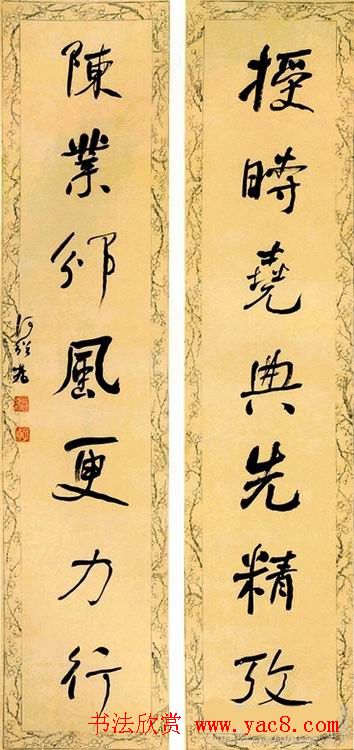 授時堯典先精攷
陳業邠風更力行
书法欣赏 www.yac8.com